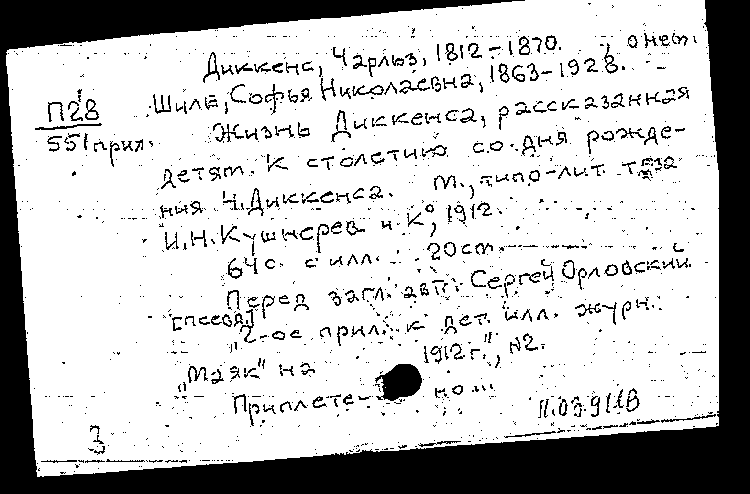 Диккенс, Чарльз, 1812-1870. , о нем.
П28
551 прил.
Шиль, Софья Николаевна, 1863-1928.
Жизнь Диккенса, рассказанная
детям. К столетию со дня рожде-
ния Ч. Диккенса. М., типо-лит. т-ва
И.Н. Кушнерев и К°, 1912.
64 с. с илл. 20 см.
Перед загл. авт.: Сергей Орловский
[псевд]
"2-ое прил. к дет. илл. журн.
"Маяк" на 1912 г.", №2.
Приплете- но...
3